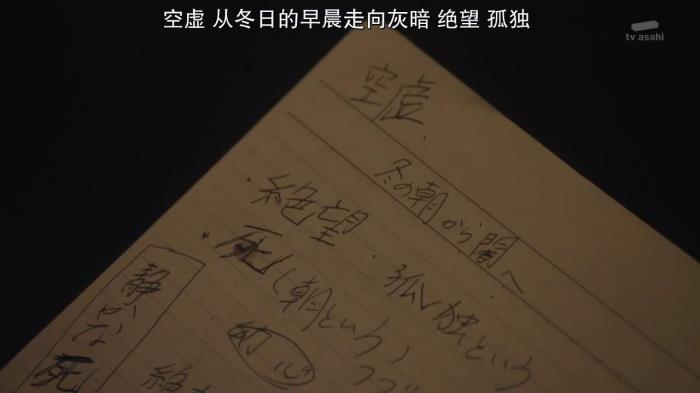 空虚 从冬日的早晨走向灰暗 绝望 孤独
tv asahi
空虚.
冬の朝から闇へ
・絶望.孤独という
・死(朝という)
幼
静かな死